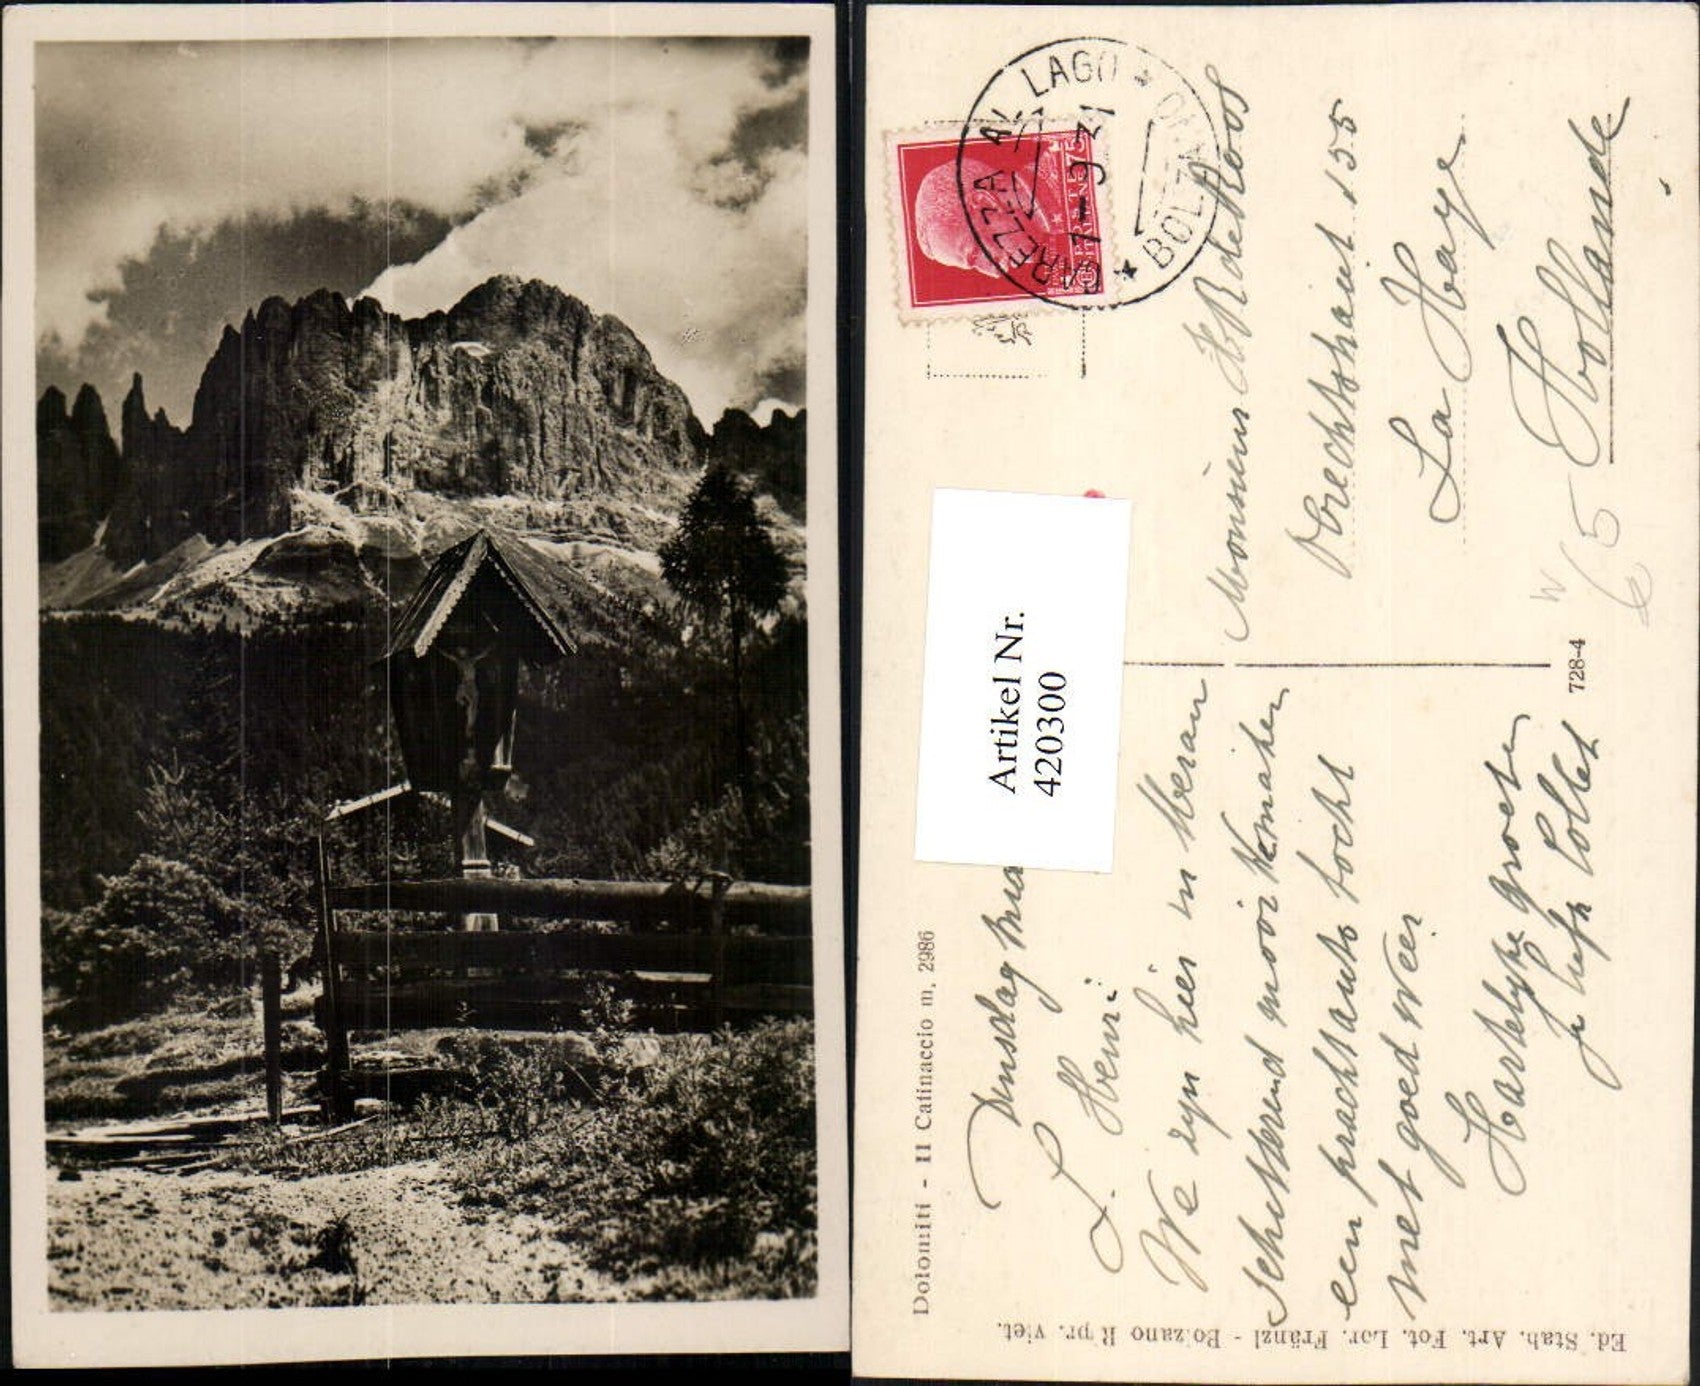 Dolomiti - Il Catinaccio m, 2986
Ed. Stab. Art. Fot. Lor. Fränzl - Bolzano R pr. viet.
728-4
CAREZZA AL LAGO * BOLZANO *
7-9 31
POSTE ITALIANE
CENT 75
Artikel Nr.
420300
Dinsdag
L. Henri
We zyn hier in Meran
schitterend mooi. Namaken
een prachtauto tocht
met goed weer
Hartelyke groeten
Monsieur H R de Roos
Utrechtshant 155
La Haye
Hollande
W
65